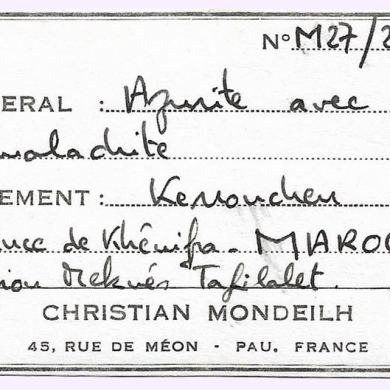 N° M27/2
ERAL : Azurite avec
malachite
EMENT : Kerrouchen
ince de Khénifra - MAROC
ion Meknès Tafilalet.
CHRISTIAN MONDEILH
45, RUE DE MÉON - PAU. FRANCE